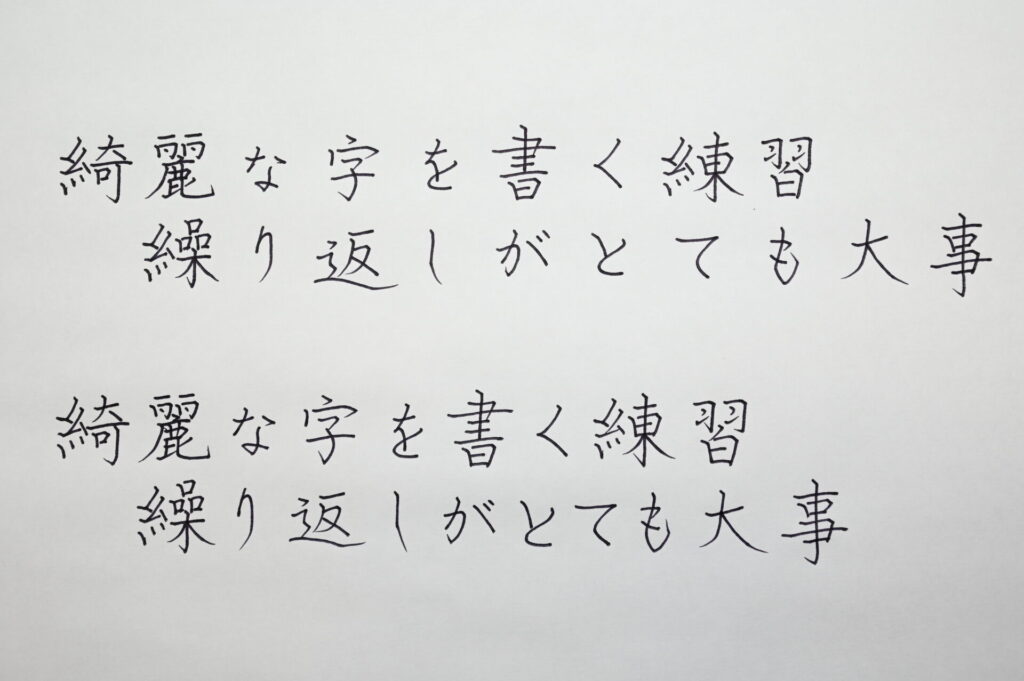 綺麗な字を書く練習
繰り返しがとても大事
綺麗な字を書く練習
繰り返しがとても大事